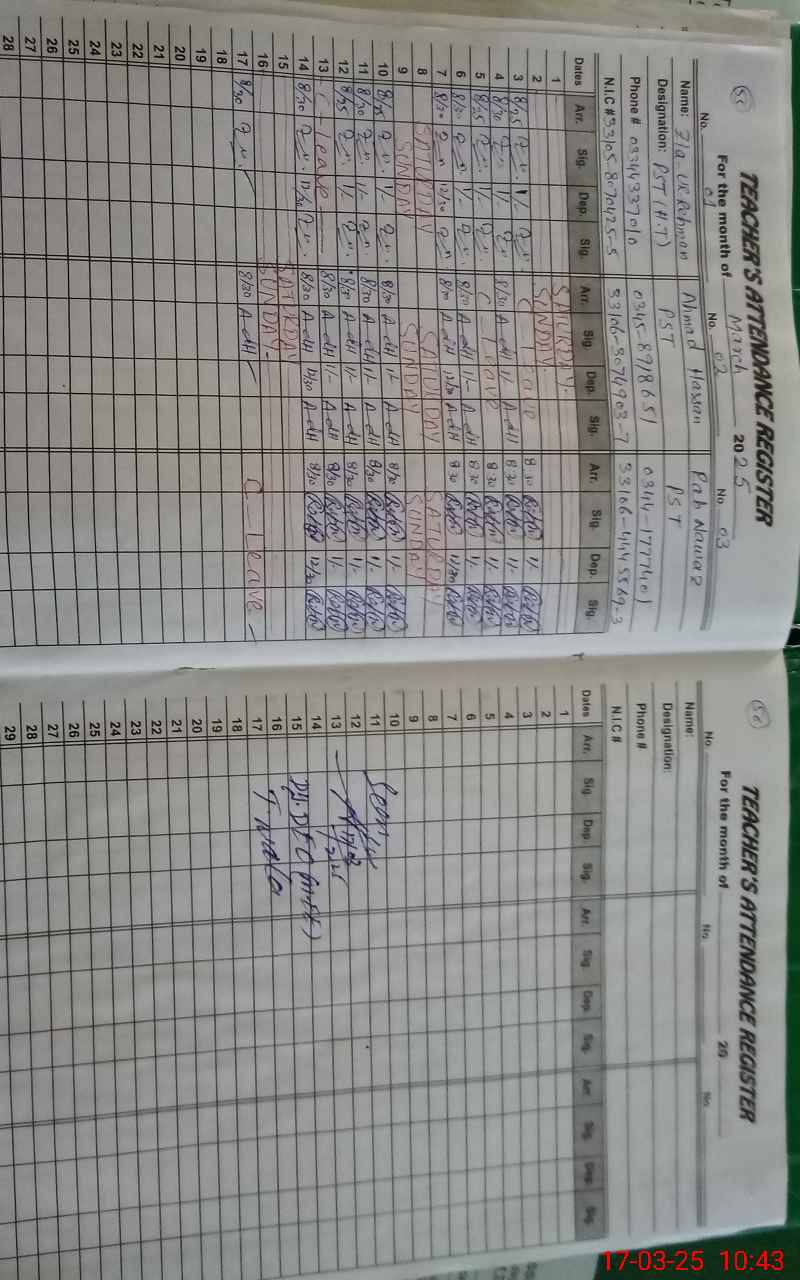 50
TEACHER'S ATTENDANCE REGISTER
For the month of March 2025
No. 01 No. 02 No. 03
Name: Zia Ur Rehman Ahmad Hassan Rab Nawaz
Designation: PST (H.T) PST PST
Phone # 03344337010 0345-8918651 0344-1777401
N.I.C # 33105-8070425-5
Dates Arr. Sig. Dep. Sig. Arr. Sig. Dep. Sig. Arr. Sig. Dep. Sig.
1 SATURDAY
2 SUNDAY
3 8/25 1/- C-Leave 8 30 1/-
4 8/30 1/- 8/30 A-dH 1/- A-dH 8 30 1/-
5 8/25 1/- C-Leave 8 30 1/-
6 8/30 1/- 8/30 A-dH 1/- A-dH 8 30 1/-
7 8/30 12/30 8/30 A-dH 12/30 A-dH 8 30 12/30
8 SATURDAY SATURDAY SATURDAY
9 SUNDAY SUNDAY SUNDAY
10 8/25 1/- 8/30 A-dH 1/- A-dH 8/30 1/-
11 8/30 1/- 8/30 A-dH 1/- A-dH 8/30 1/-
12 8/25 1/- 8/30 A-dH 1/- A-dH 8/30 1/-
13 C-Leave 8/30 A-dH 1/- A-dH 8/30 1/-
14 8/30 12/30 8/30 A-dH 12/30 A-dH 8/30 12/30
15 SATURDAY
16 SUNDAY
17 8/30 8/30 A-dH C-Leave
18
19
20
21
22
23
24
25
26
27
28
50
TEACHER'S ATTENDANCE REGISTER
For the month of 20
No. No. No.
Name:
Designation:
Phone #
N.I.C #
Dates Arr. Sig. Dep. Sig. Arr. Sig. Dep. Sig. Arr. Sig. Dep. Sig.
1
2
3
4
5
6
7
8
9
10
11 Seen
12
13
14
15 Dy. DEO
16
17
18
19
20
21
22
23
24
25
26
27
28
29
17-03-25 10:43